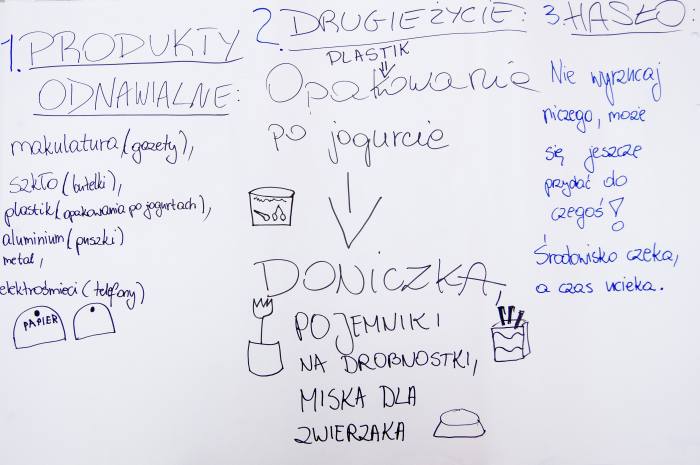 1. PRODUKTY
ODNAWIALNE:
makulatura (gazety),
szkło (butelki),
plastik (opakowania po jogurtach),
aluminium (puszki)
metal,
elektrośmieci (telefony)
PAPIER
2. DRUGIE ŻYCIE:
PLASTIK
Opakowanie
po jogurcie
DONICZKA,
POJEMNIKI
NA DROBNOSTKI,
MISKA DLA
ZWIERZAKA
3. HASŁO:
Nie wyrzucaj
niczego, może
się jeszcze
przydać do
czegoś!
Środowisko czeka,
a czas ucieka.